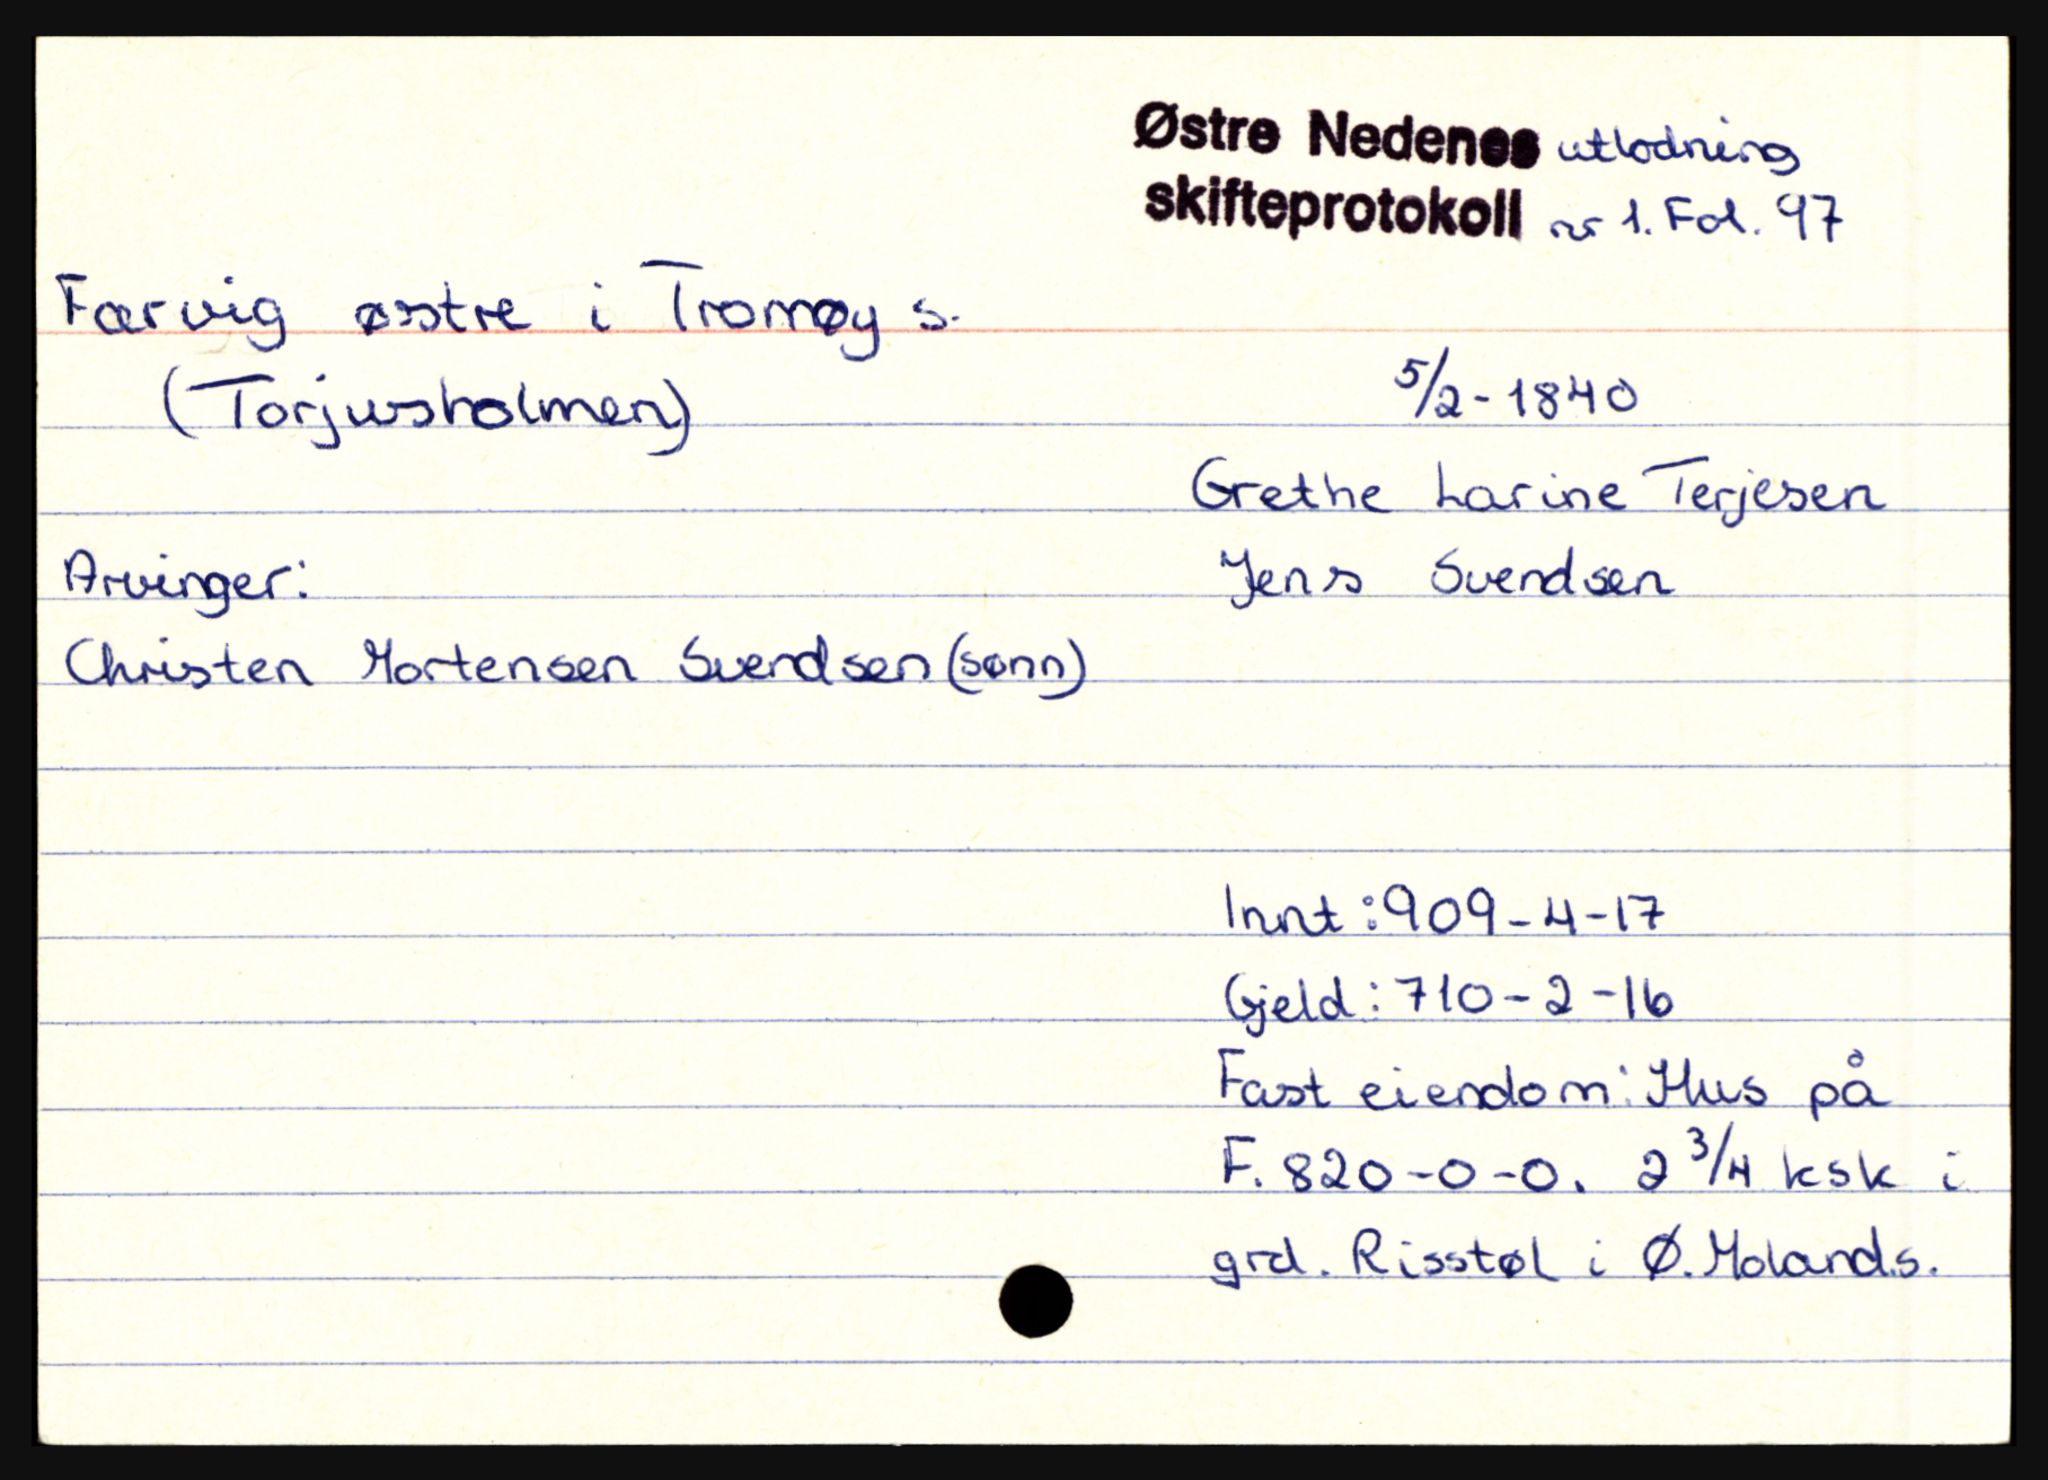 Østre Nedenes utlodning
skifteprotokoll nr 1. Fol. 97
Færvig østre i Tromøy s.
(Torjusholmen)
5/2-1840
Grethe Larine Terjesen
Arvinger:
Jens Svendsen
Christen Mortensen Svendsen (sønn)
Innt: 909-4-17
Gjeld: 710-2-16
Fast eiendom: Hus på
F. 820-0-0. 2 3/4 ksk i
grd. Risstøl i Ø. Moland s.